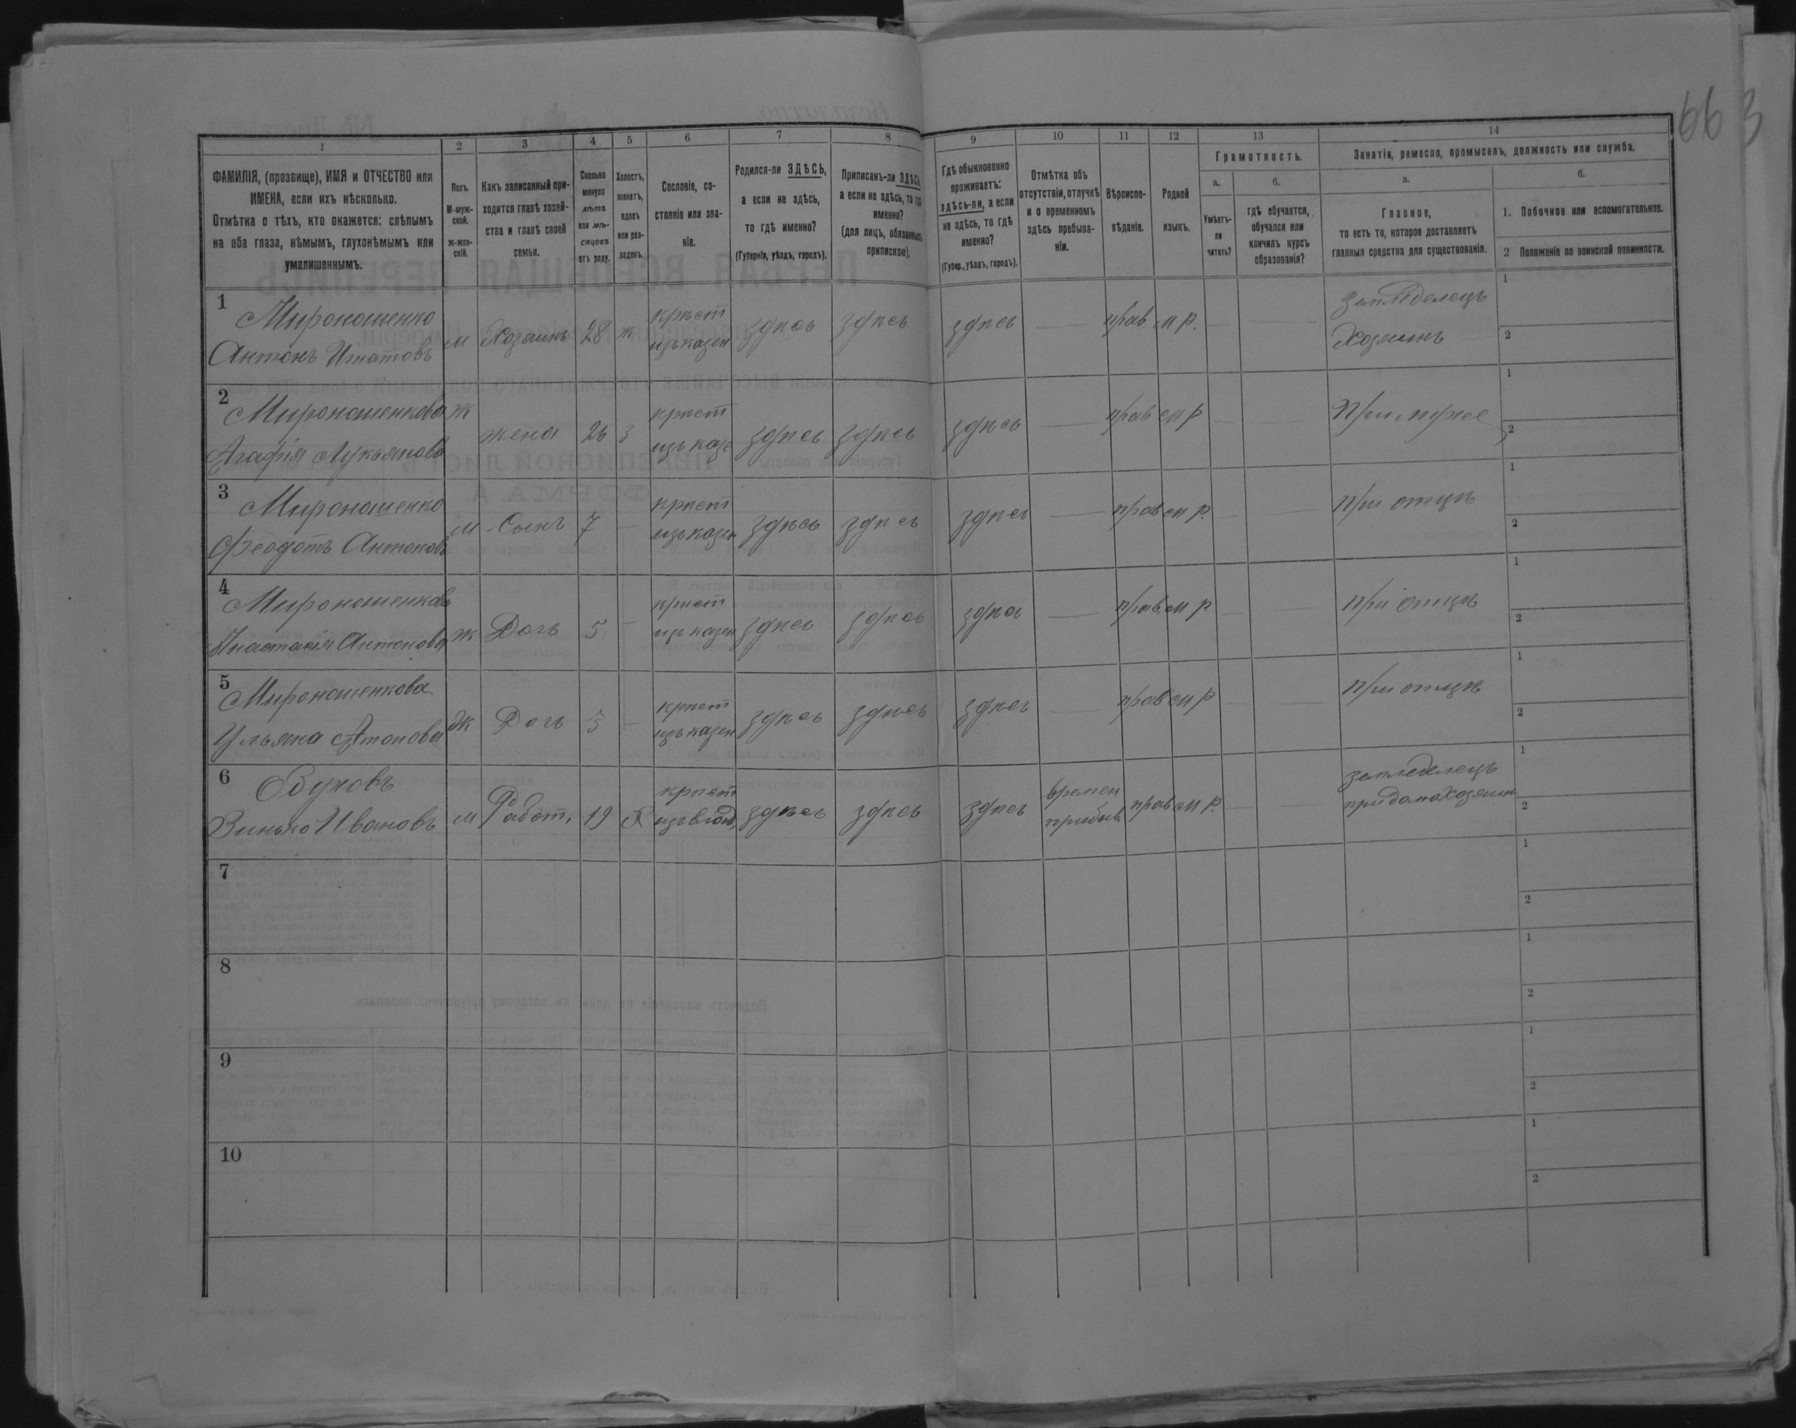 663
1 2 3 4 5 6 7 8 9 10 11 12 13 14
ФАМИЛІЯ, (прозвище), ИМЯ и ОТЧЕСТВО или
ИМЕНА, если ихъ нѣсколько.
Отмѣтка о тѣхъ, кто окажется: слѣпымъ
на оба глаза, нѣмымъ, глухонѣмымъ или
умалишеннымъ.
Полъ.
М-муж-
ской.
ж-жен-
скій.
Какъ записанный при-
ходится главѣ хозяй-
ства и главѣ своей
семьи.
Сколько
минуло
лѣтъ
или мѣ-
сяцевъ
отъ роду.
Холостъ,
женатъ,
вдовъ
или раз-
веденъ.
Сословіе, со-
стояніе или зва-
ніе.
Родился-ли ЗДѢСЬ,
а если не здѣсь,
то гдѣ именно?
(Губернія, уѣздъ, городъ).
Приписанъ-ли ЗДѢСЬ,
а если не здѣсь, то гдѣ
именно?
(для лицъ, обязанныхъ
припискою).
Гдѣ обыкновенно
проживаетъ:
здѣсь-ли, а если
не здѣсь, то гдѣ
именно?
(Губер., уѣздъ, городъ).
Отмѣтка объ
отсутствіи, отлучкѣ
и о временномъ
здѣсь пребыва-
ніи.
Вѣроиспо-
вѣданіе.
Родной
языкъ.
Грамотность.
а.
Умѣетъ-
ли
читать?
б.
гдѣ обучается,
обучался или
кончилъ курсъ
образованія?
Занятія, ремесло, промыселъ, должность или служба.
а.
Главное,
то есть то, которое доставляетъ
главныя средства для существованія.
б.
1. Побочное или вспомогательное.
2 Положеніе по воинской повинности.
1
Мирошошенко
Антонъ Игнатовъ
м Хозяинъ 28 ж
крпст
изъ казен
здпсь здпсь здпсь — прав м р. — —
земледелецъ
Хозяинъ
1
2
2
Мирошошенкова
Агафія Лукьянова
ж жена 26 з
крпст
изъ казе
здпсь здпсь здпсь — прав м р — —
При мужее
1
2
3
Мирошошенко
Феодотъ Антоновъ
м Сынъ 7 —
крпст
изъ казен
здпсь здпсь здпсь — прав м р. — —
при отцпъ
1
2
4
Мирошошенкова
Анастасія Антонова
ж Дочь 5 —
крпст
изъ казен
здпсь здпсь здпсь — прав м р — —
при отцпъ
1
2
5
Мирошошенкова
Ульяна Атонова
ж Дочь 3 —
крпст
изъ казен
здпсь здпсь здпсь — прав м р — —
при отцпъ
1
2
6
Обуховъ
Зинько Ивановъ
м Работ. 19 Х
крпст
здпсь здпсь здпсь
времен
прибыв
прав м р. — —
земледелецъ
при домохозяин
1
2
7
1
2
8
1
2
9
1
2
10
1
2